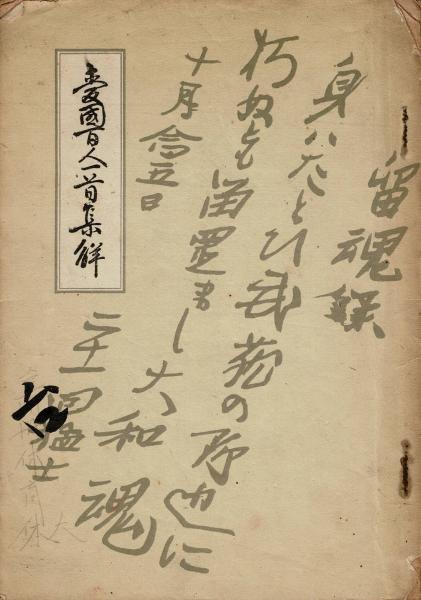 留魂録
身ハたとひ武蔵の野辺に
朽ぬとも留置まし大和魂
十月念五日
二十一回猛士
愛國百人一首集解